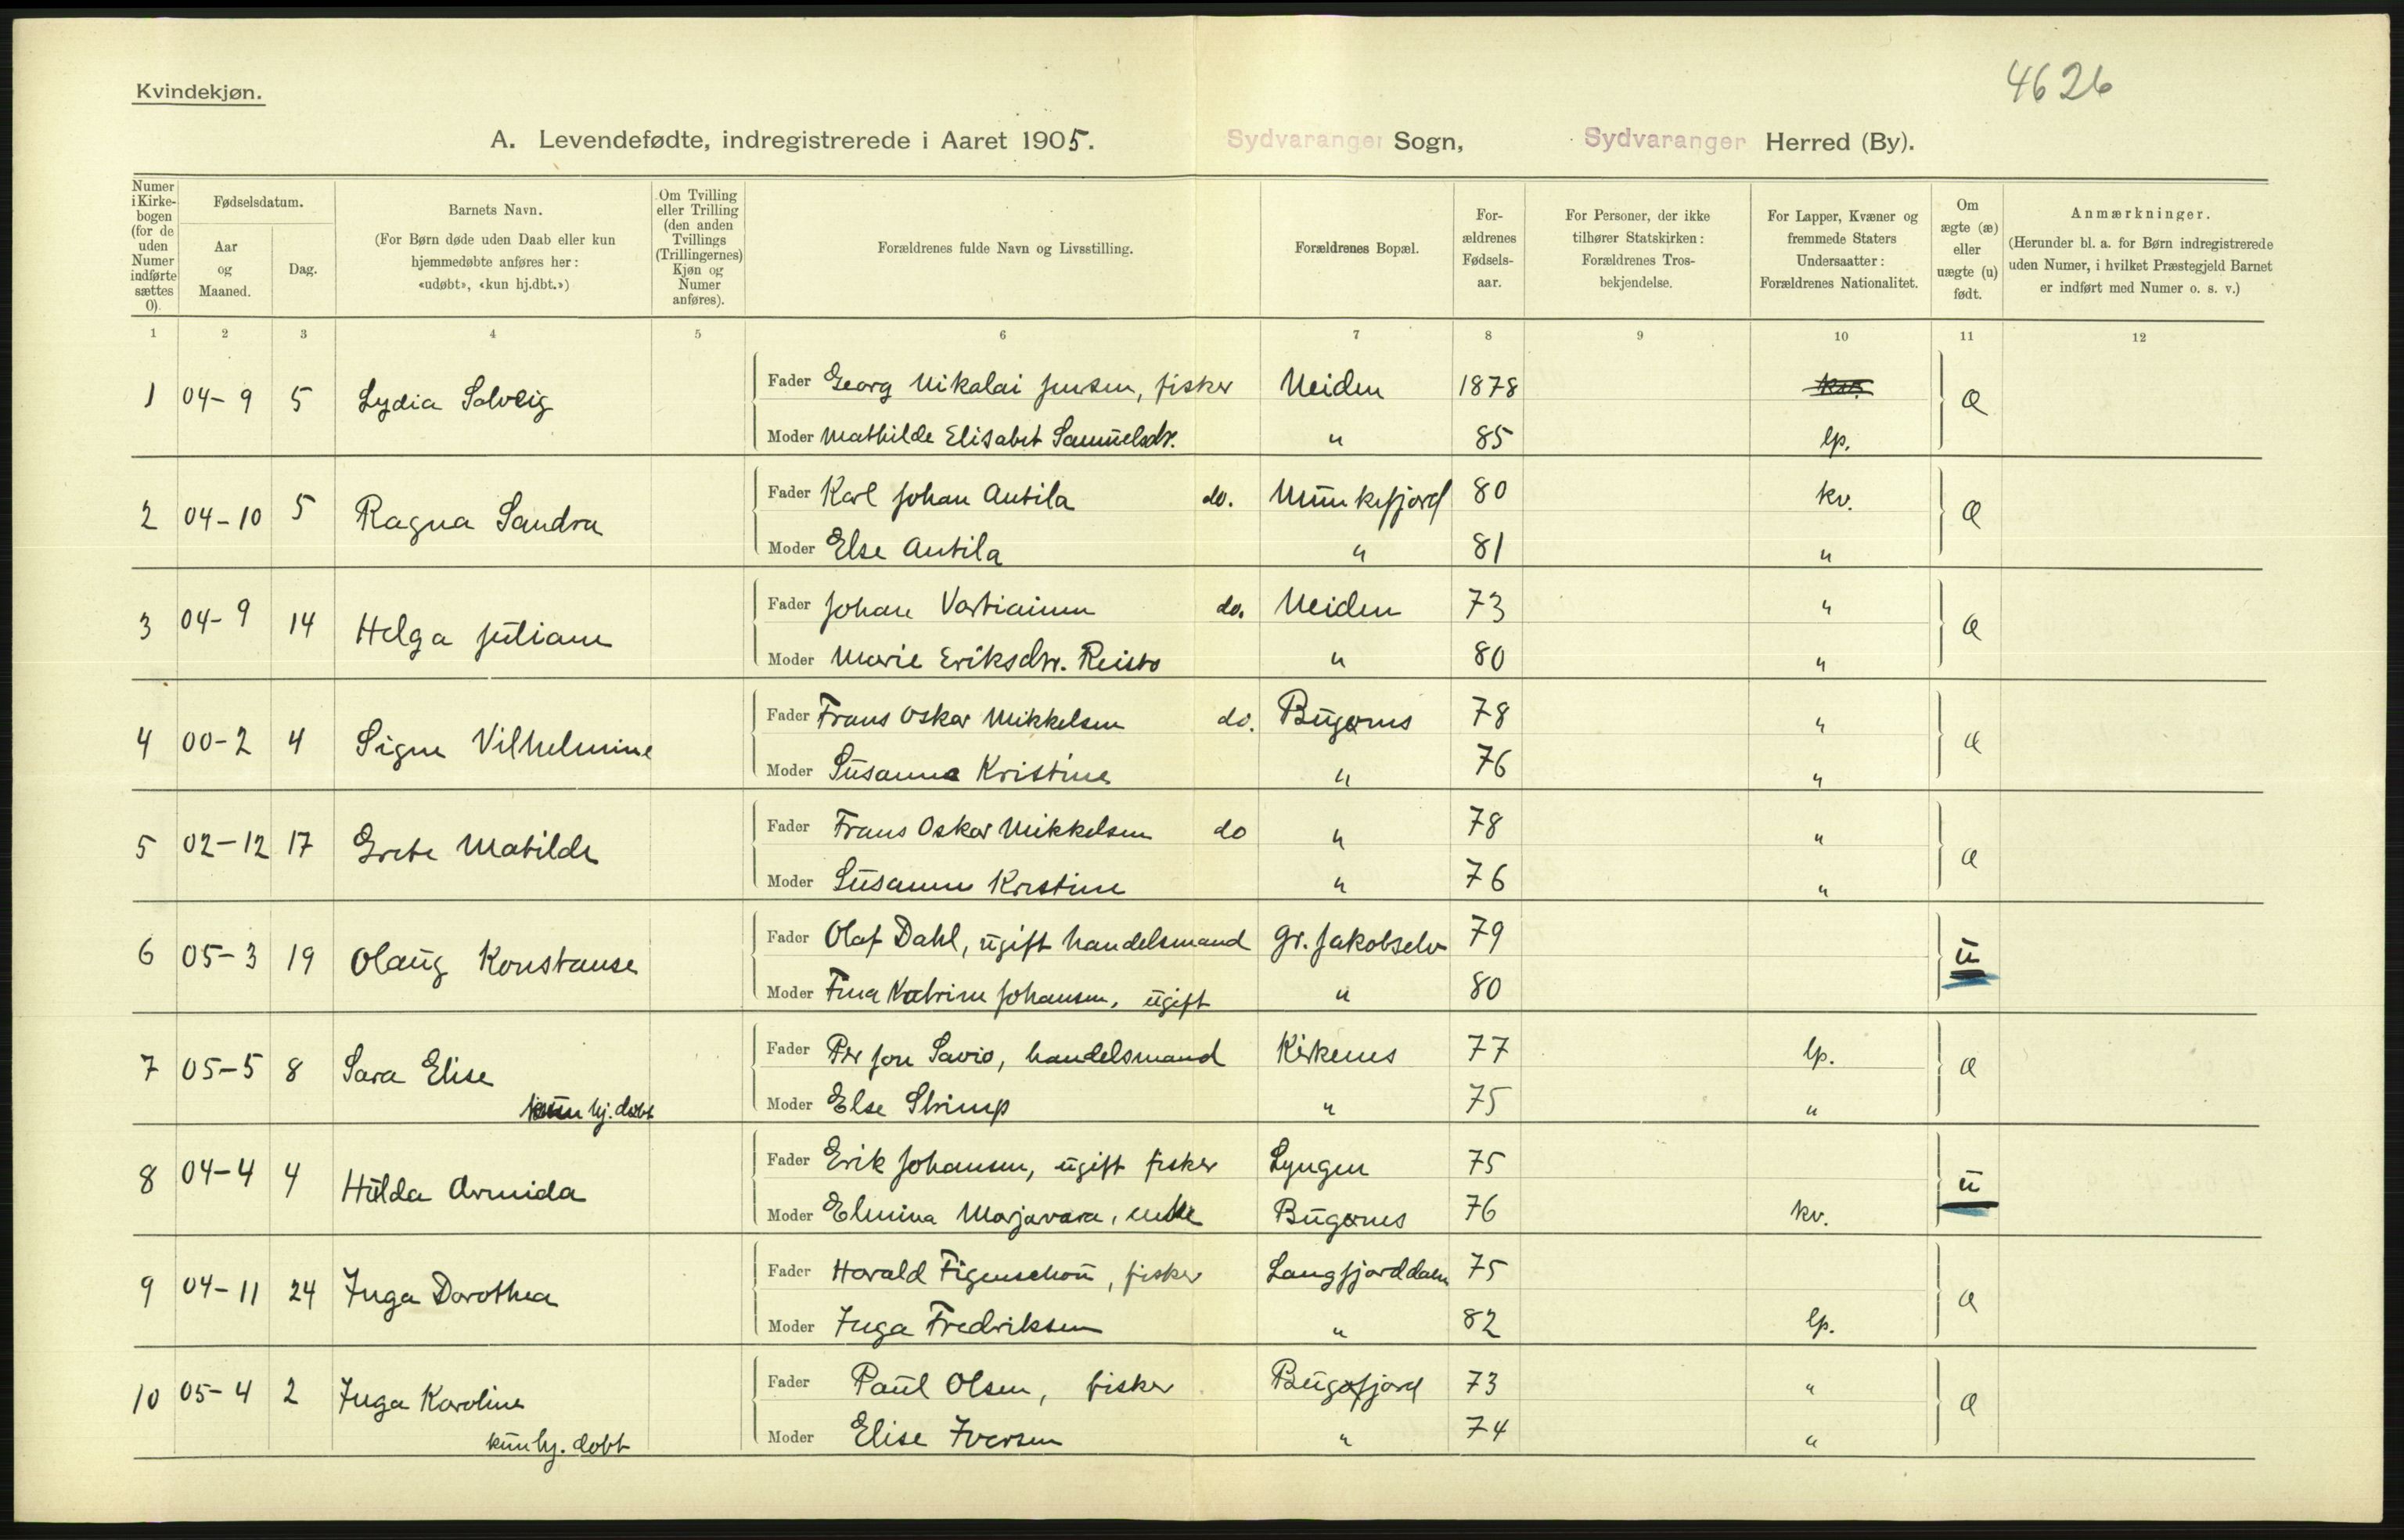 Kvindekjøn.
4626
A. Levendefødte, indregistrerede i Aaret 1905. Sydvaranger Sogn, Sydvaranger Herred (By).
Numer i Kirkebogen (for de uden Numer indførte sættes 0).
Fødselsdatum.
Aar og Maaned.
Dag.
Barnets Navn.
(For Børn døde uden Daab eller kun hjemmedøbte anføres her: «udøbt», «kun hj.dbt.»)
Om Tvilling eller Trilling (den anden Tvillings (Trillingernes) Kjøn og Numer anføres).
Forældrenes fulde Navn og Livsstilling.
Forældrenes Bopæl.
Forældrenes Fødselsaar.
For Personer, der ikke tilhører Statskirken: Forældrenes Trosbekjendelse.
For Lapper, Kvæner og fremmede Staters Undersaatter: Forældrenes Nationalitet.
Om ægte (æ) eller uægte (u) født.
Anmærkninger.
(Herunder bl. a. for Børn indregistrerede uden Numer, i hvilket Præstegjeld Barnet er indført med Numer o. s. v.)
1 2 3 4 5 6 7 8 9 10 11 12
1 04-9 5 Lydia Solveig Fader Georg Nikolai Jensen, fisker Neiden 1878 kv. æ
Moder Mathilde Elisabet Samuelsdr. " 85 lp.
2 04-10 5 Ragna Sandra Fader Karl Johan Antila do. Munkefjord 80 kv. æ
Moder Else Antila " 81 "
3 04-9 14 Helga Juliane Fader Johan Vartiainen do. Neiden 73 " æ
Moder Marie Eriksdr. Reisto " 80 "
4 00-2 4 Signe Vilhelmine Fader Frans Oskar Mikkelsen do. Bugønes 78 " æ
Moder Susanna Kristine " 76 "
5 02-12 17 Grete Matilde Fader Frans Oskar Mikkelsen do " 78 " æ
Moder Susanne Kristine " 76 "
6 05-3 19 Olaug Konstanse Fader Olaf Dahl, ugift handelsmand Gr. Jakobselv 79 u
Moder Fina Katrine Johansen, ugift " 80
7 05-5 8 Sara Elise Fader Per Jon Savio, handelsmand Kirkenes 77 lp. æ
kun hj. døbt Moder Else Strimp " 75 "
8 04-4 4 Hilda Armida Fader Erik Johansen, ugift fisker Lyngen 75 u
Moder Elmina Marjavara, enke Bugønes 76 kv.
9 04-11 24 Inga Dorothea Fader Harald Figenschou, fisker Langfjorddalen 75 æ
Moder Inga Fredriksen " 82 lp.
10 05-4 2 Inga Karoline Fader Paul Olsen, fisker Bugøfjord 73 " æ
kun hj. døbt Moder Elise Iversen " 74 "